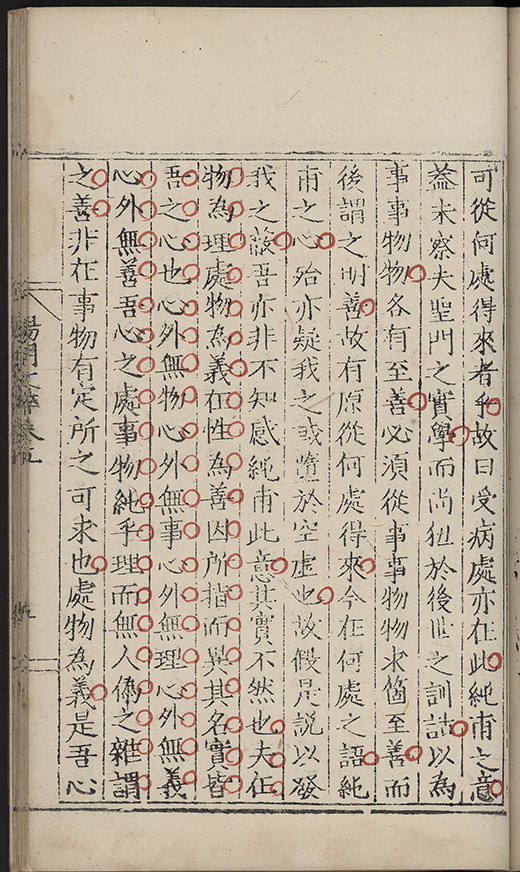 可從何處得來者乎故曰受病處亦在此純甫之意
蓋未察夫聖門之實學而尚狃於後世之訓詁以為
事事物物各有至善必須從事事物物求箇至善而
後謂之明善故有原從何處得來今在何處之語純
甫之心殆亦疑我之或墮於空虛也故假是說以發
我之蔽吾亦非不知感純甫此意其實不然也夫在
物為理處物為義在性為善因所指而異其名實皆
吾之心也心外無物心外無事心外無理心外無義
心外無善吾心之處事物純乎理而無人偽之雜謂
之善非在事物有定所之可求也處物為義是吾心
陽明文粹卷五